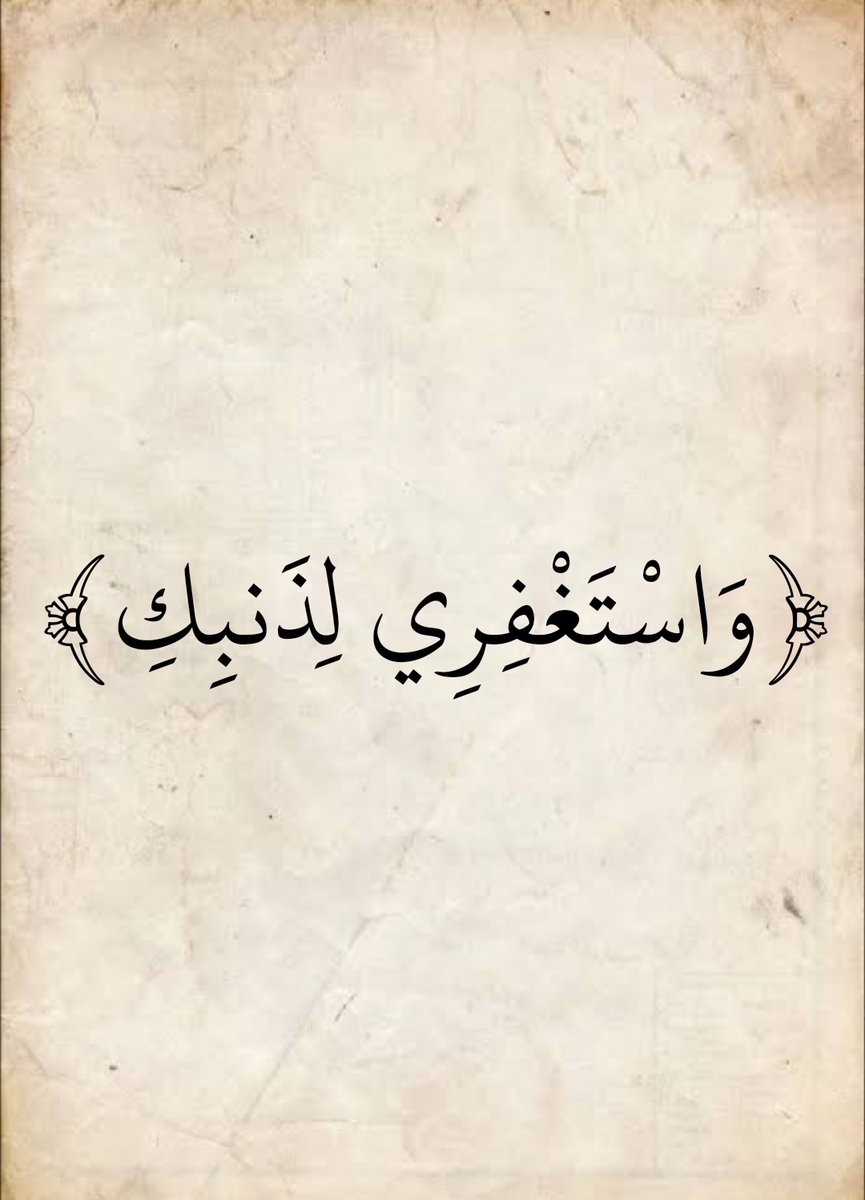 ﴿وَاسْتَغْفِرِي لِذَنبِكِ﴾